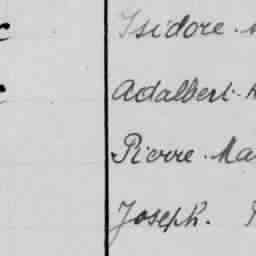 Isidore.
Adalbert.
Pierre. Ma
Joseph.